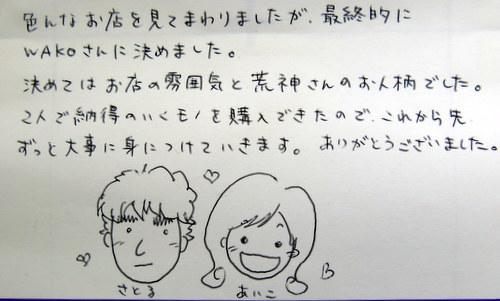 色んなお店を見てまわりましたが、最終的に
WAKOさんに決めました。
決めてはお店の雰囲気と荒神さんのお人柄でした。
2人で納得のいくモノを購入できたので、これから先
ずっと大事に身につけていきます。 ありがとうございました。
さとる あいこ